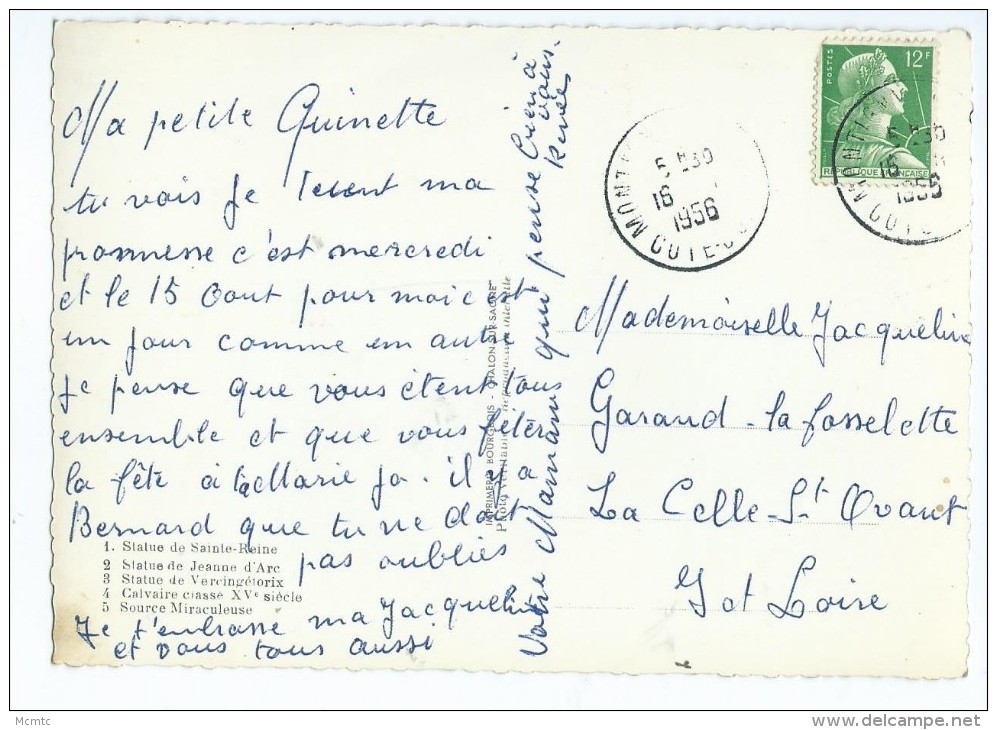 Ma petite Quinette
tu vois je tient ma
promesse c'est mercredi
et le 15 Aout pour moi c'est
un jour comme un autre
Je pense que vous étent tous
ensemble et que vous fêter
la fête à la Marie Jo. il y a
Bernard que tu ne doit
pas oublies
Je t'embrasse ma Jacqueline
et vous tous aussi
Votre Maman qui pense bien à
vous.
Renée
1. Statue de Sainte-Reine
2 Statue de Jeanne d'Arc
3 Statue de Vercingétorix
4 Calvaire classé XVe siècle
5 Source Miraculeuse
IMPRIMERIE BOURGEOIS - CHALON-SUR-SAONE
Photo véritable - Reproduction interdite
POSTES
12F
REPUBLIQUE FRANÇAISE
5 H30
16
1956
COTE-D
5 H30
16
1956
COTE
Mademoiselle Jacqueline
Garand - la fosselette
La Celle-St Avant
I et Loire
Mcmtc
www.delcampe.net